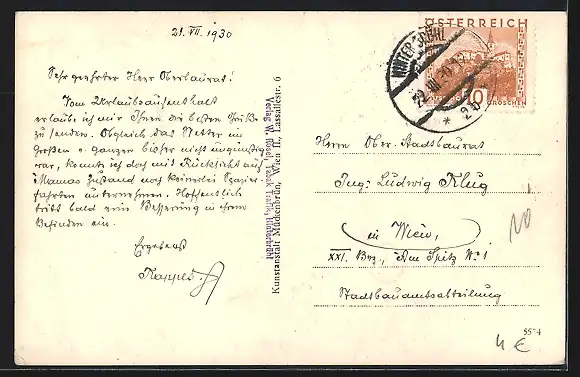 21. VII. 1930
Sehr geehrter Herr Oberbaurat!
Vom Urlaubsaufenthalt
erlaube ich mir Ihnen die besten Grüße
zu senden. Obgleich das Wetter im
Großen u. Ganzen bisher nicht ungünstig
war, konnte ich doch mit Rücksicht auf
Mamas Zustand noch keinerlei Spazier-
fahrten unternehmen. Hoffentlich
tritt bald eine Besserung in ihrem
Befinden ein.
Ergebenst
Kunstanstalt Mückenbrün, Wien II., Lassallestr. 6
Verlag W. Hösel, Tabak Trafik, Hinterbrühl
ÖSTERREICH
10
GROSCHEN
HINTERBRÜHL
* 2b
Herrn Ober-Stadtbaurat
Ing: Ludwig Klug
in Wien,
XXI. Bez., Am Spitz No 1
Stadtbauamtsabteilung
10
5574
4 €